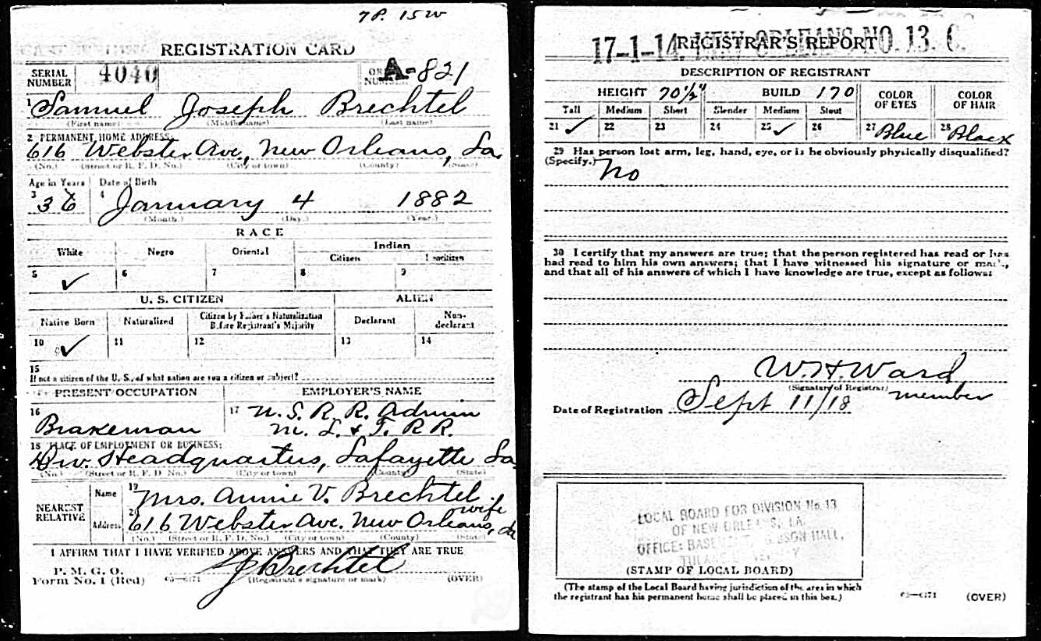 7P. 15W
REGISTRATION CARD
SERIAL NUMBER 4040
A-821
1 Samuel Joseph Brechtel
(First name) (Middle name) (Last name)
2 PERMANENT HOME ADDRESS:
616 Webster Ave, New Orleans, La
(No.) (Street or R. F. D. No.) (City or town) (County) (State)
Age in Years Date of Birth
3 36 4 January 4 1882
(Month.) (Day.) (Year.)
RACE
White Negro Oriental Indian
Citizen
5 ✓ 6 7 8 9
U. S. CITIZEN ALIEN
Native Born Naturalized Citizen by Father's Naturalization Before Registrant's Majority Declarant Non-declarant
10 ✓ 11 12 13 14
15
If not a citizen of the U. S., of what nation are you a citizen or subject?
PRESENT OCCUPATION EMPLOYER'S NAME
16 Brakeman 17 U. S. R. R. Admin
M. L. & T. R R.
18 PLACE OF EMPLOYMENT OR BUSINESS:
Div. Headquarters, Lafayette La
(No.) (Street or R. F. D. No.) (City or town) (County) (State)
NEAREST RELATIVE
Name 19 Mrs. Annie V. Brechtel
wife
Address 20 616 Webster Ave. New Orleans, La
(No.) (Street or R. F. D. No.) (City or town) (County) (State)
I AFFIRM THAT I HAVE VERIFIED ABOVE ANSWERS AND THAT THEY ARE TRUE
P. M. G. O.
Form No. 1 (Red) 03—6171 (Registrant's signature or mark) (OVER)
S J Brechtel
17-1-14. NEW ORLEANS NO. 13. C.
REGISTRAR'S REPORT
DESCRIPTION OF REGISTRANT
HEIGHT 70½" BUILD 170 COLOR OF EYES COLOR OF HAIR
Tall Medium Short Slender Medium Stout
21 ✓ 22 23 24 25 ✓ 26 27 Blue 28 Black
29 Has person lost arm, leg, hand, eye, or is he obviously physically disqualified?
(Specify.) No
30 I certify that my answers are true; that the person registered has read or has
had read to him his own answers; that I have witnessed his signature or mark,
and that all of his answers of which I have knowledge are true, except as follows:
W H Ward
(Signature of Registrar) member
Date of Registration Sept 11/18
LOCAL BOARD FOR DIVISION No. 13
OF NEW ORLEANS, LA.
(STAMP OF LOCAL BOARD)
(The stamp of the Local Board having jurisdiction of the area in which
the registrant has his permanent home shall be placed in this box.)
03—6171 (OVER)